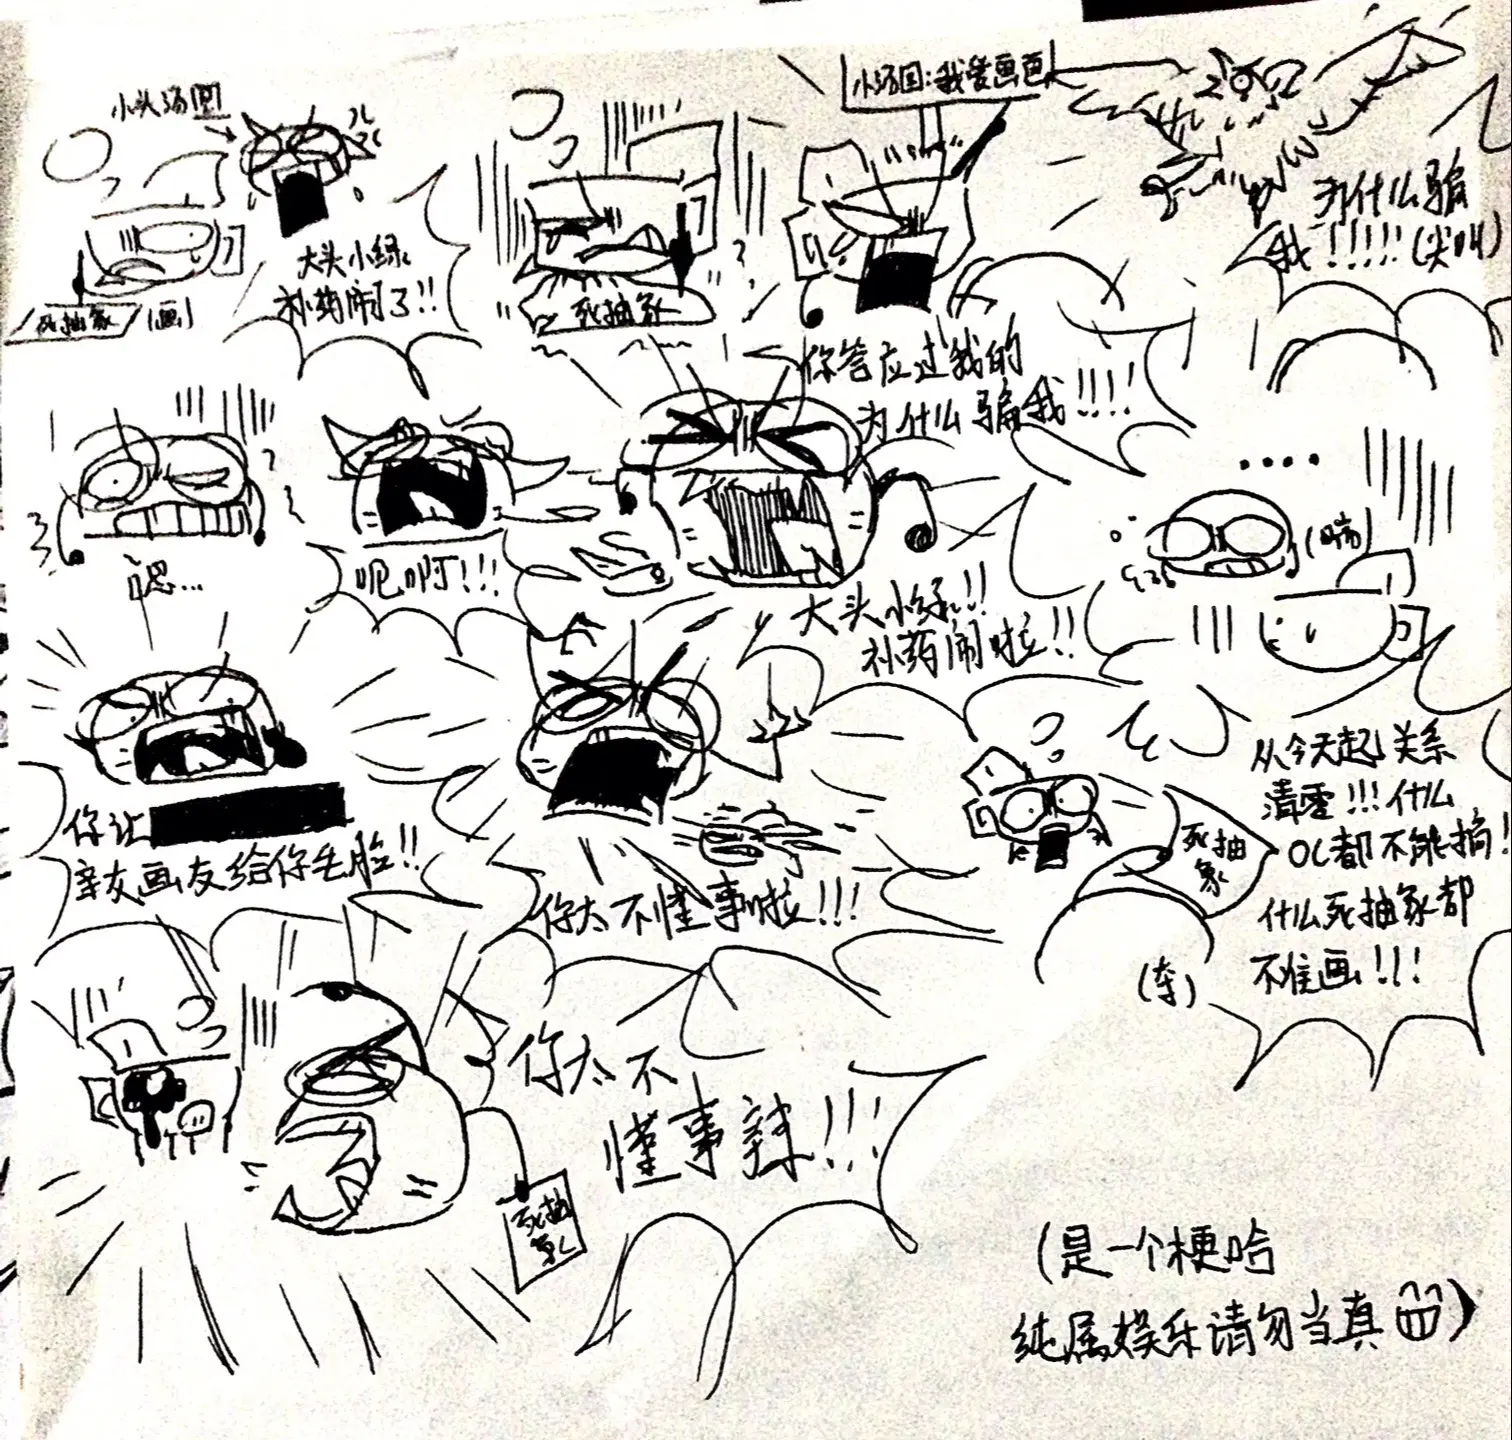 小头汤圆
死抽象
(画)
大头小绿
补药闹了!!
死抽象
小汤圆:我爱画画
你答应过我的
为什么骗我!!!!
为什么骗
我!!!!!(尖叫)
呃啊!!!
大头小绿!!
补药闹啦!!
....
你让
亲友画友给你丢脸!!
你太不懂事啦!!!
死抽
象
(夺)
从今天起关系
清零!!!什么
OC都不能搞!
什么死抽象都
不准画!!!
你太不
懂事辣!!!
死抽
象
(是一个梗哈
纯属娱乐请勿当真)